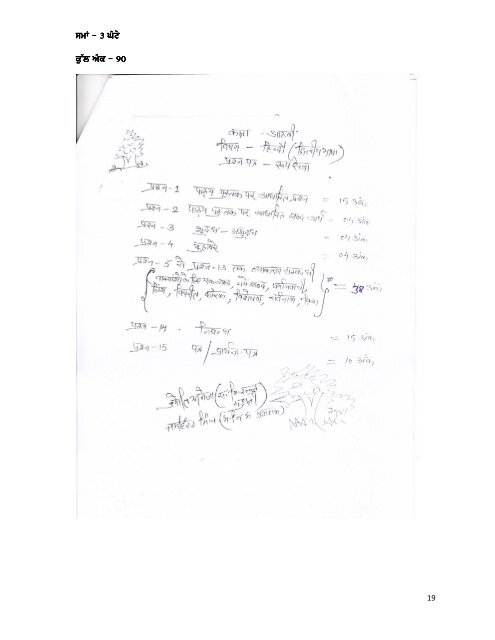 ਸਮਾਂ – 3 ਘੰਟੇ
ਕੁੱਲ ਅੰਕ – 90
कक्षा - आठवीं
विषय – हिन्दी (द्वितीय भाषा)
प्रश्न पत्र – रूप रेखा
प्रश्न-1 पाठ्य पुस्तक पर आधारित प्रश्न = 15 अंक
प्रश्न - 2 पाठ्य पुस्तक पर आधारित शब्द-अर्थ - 04 अंक
प्रश्न - 3 शुद्ध – अशुद्ध - 04 अंक
प्रश्न - 4 मुहावरे = 04 अंक
प्रश्न - 5 से प्रश्न-13 तक व्याकरण
वाक्यांशों के लिए एक शब्द, पर्यायवाची,
लिंग, विपरीत, कारक, विशेषण, सर्वनाम, क्रिया = 38 अंक
प्रश्न - 14 - निबन्ध = 15 अंक
प्रश्न - 15 पत्र / प्रार्थना-पत्र = 10 अंक
19